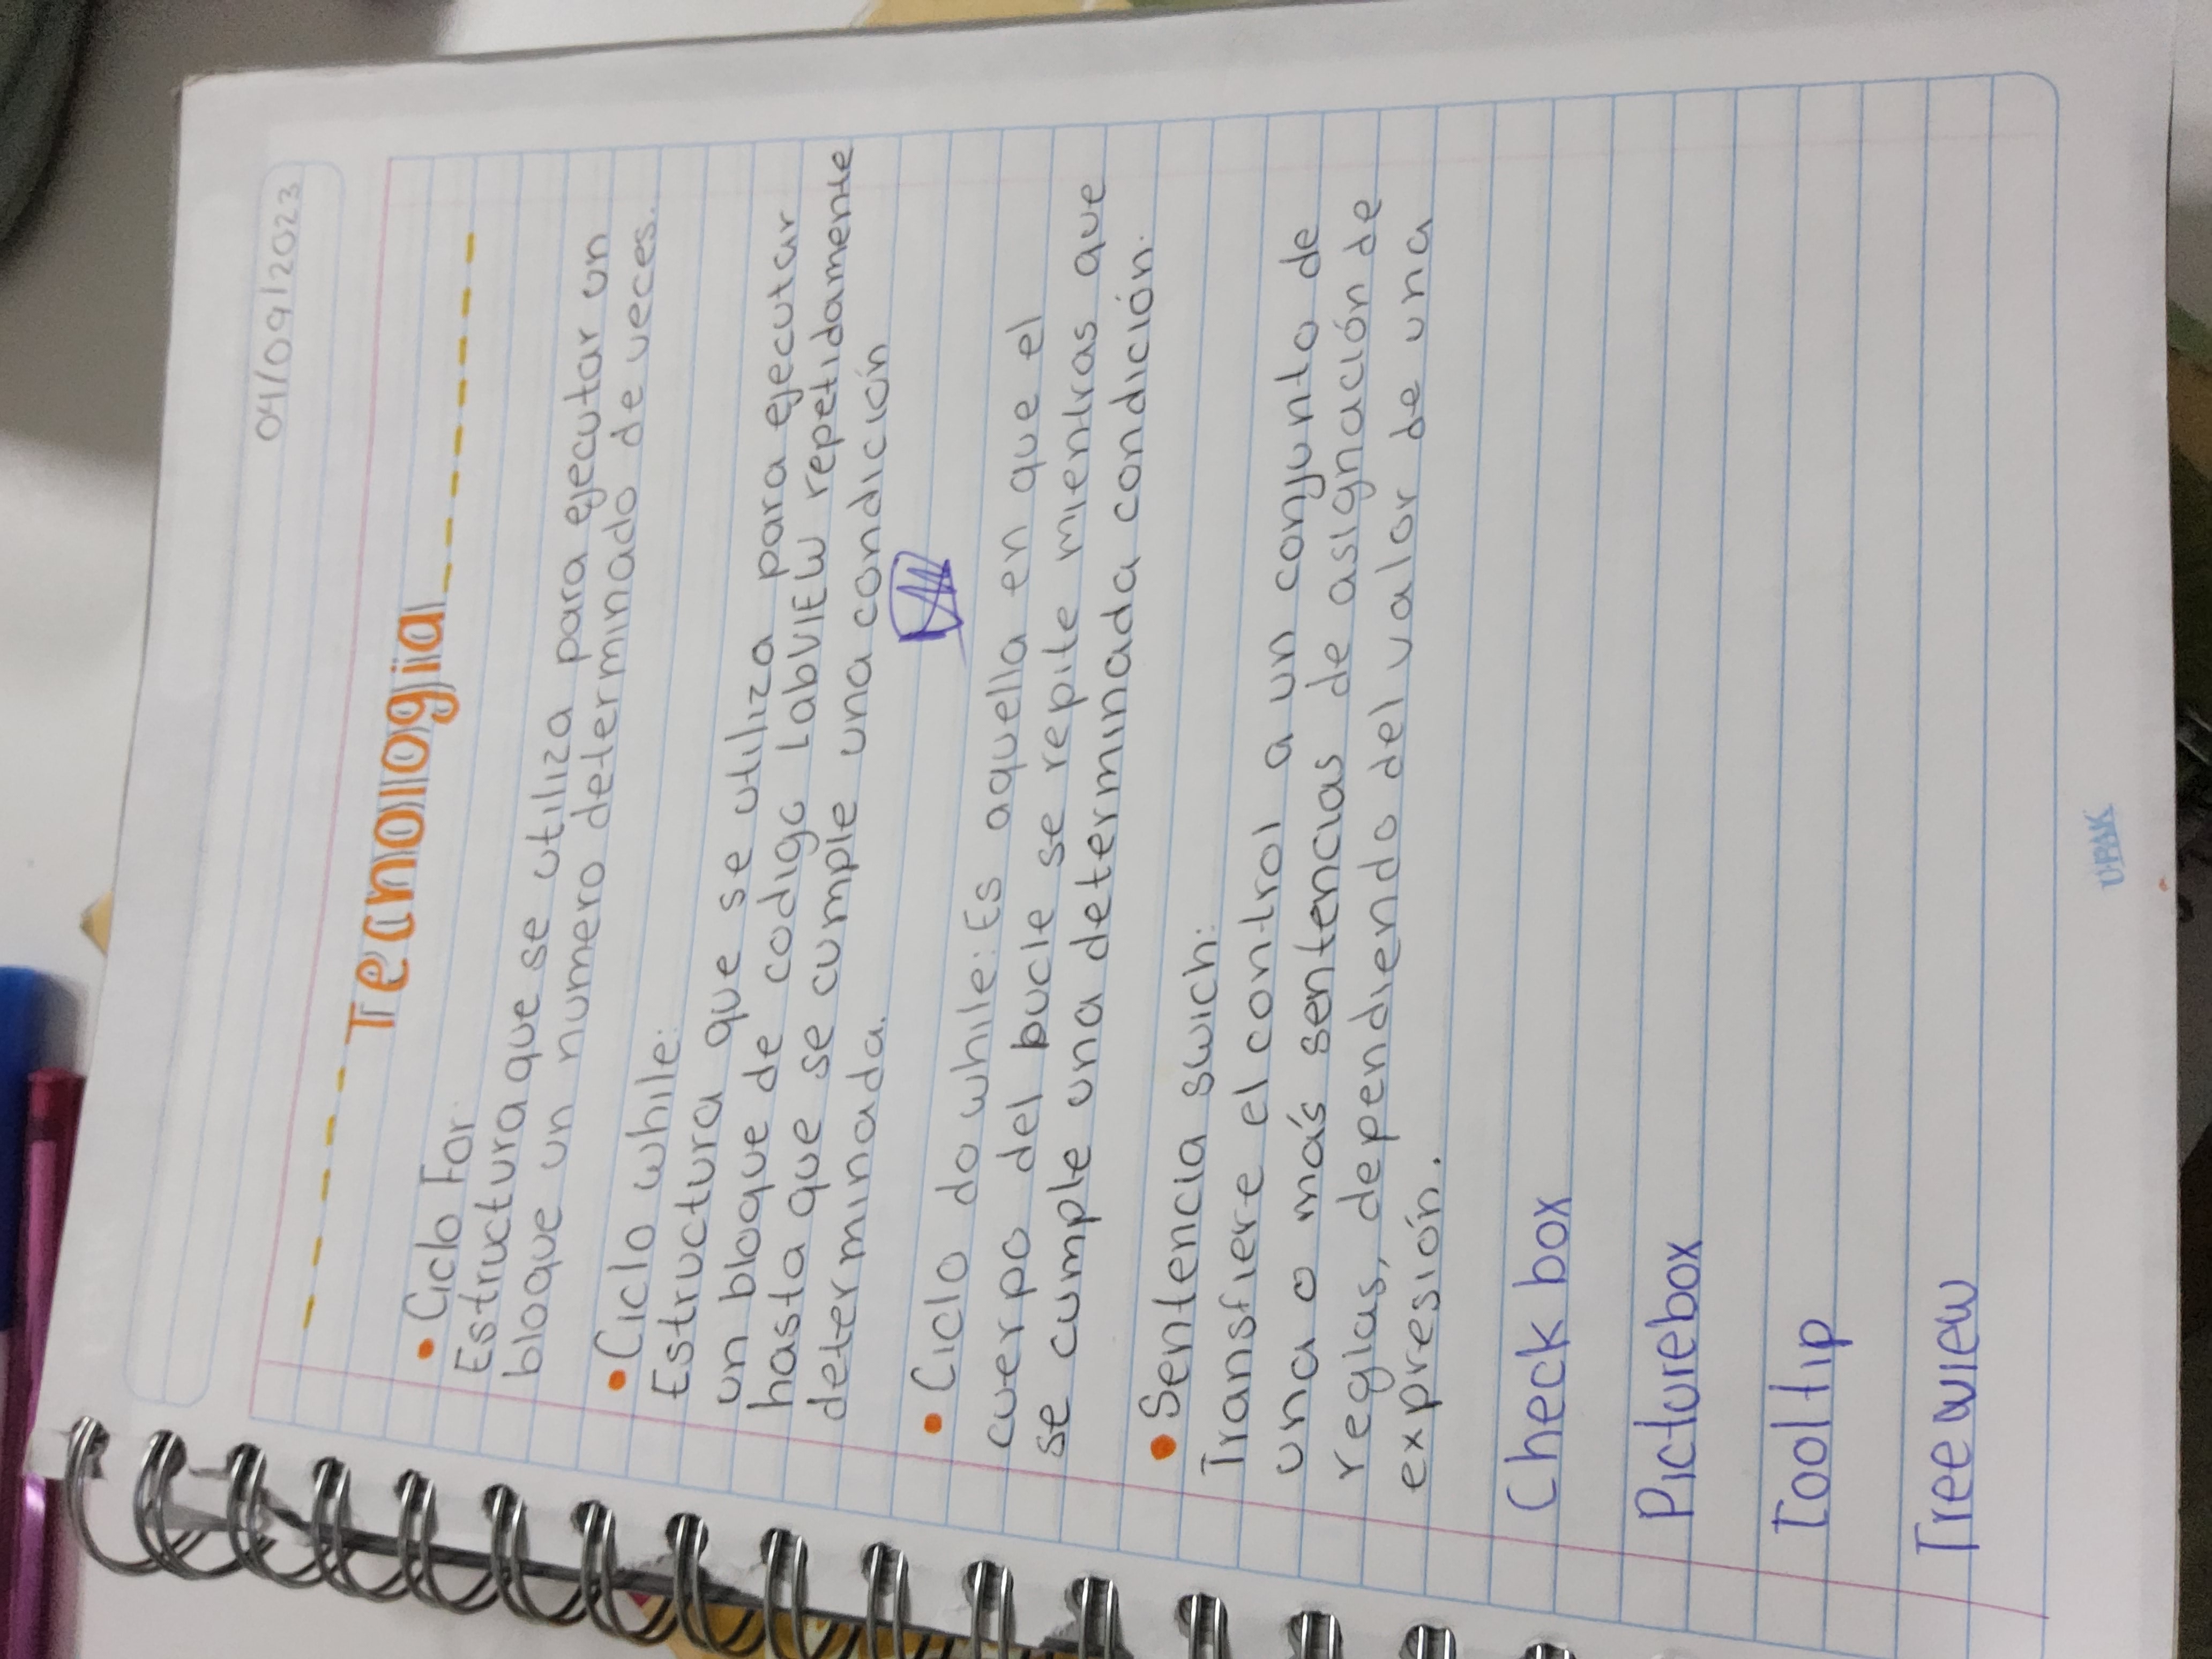 04/09/2023
Tecnología
• Ciclo For:
Estructura que se utiliza para ejecutar un
bloque un numero determinado de veces.
• Ciclo while:
Estructura que se utiliza para ejecutar
un bloque de codigo LabVIEW repetidamente
hasta que se cumple una condición
determinada.
• Ciclo do while: Es aquella en que el
cuerpo del bucle se repite mientras que
se cumple una determinada condición.
• Sentencia swich:
Transfiere el control a un conjunto de
una o más sentencias de asignación de
reglas, dependiendo del valor de una
expresión.
Check box
Picturebox
Tooltip
Treeview